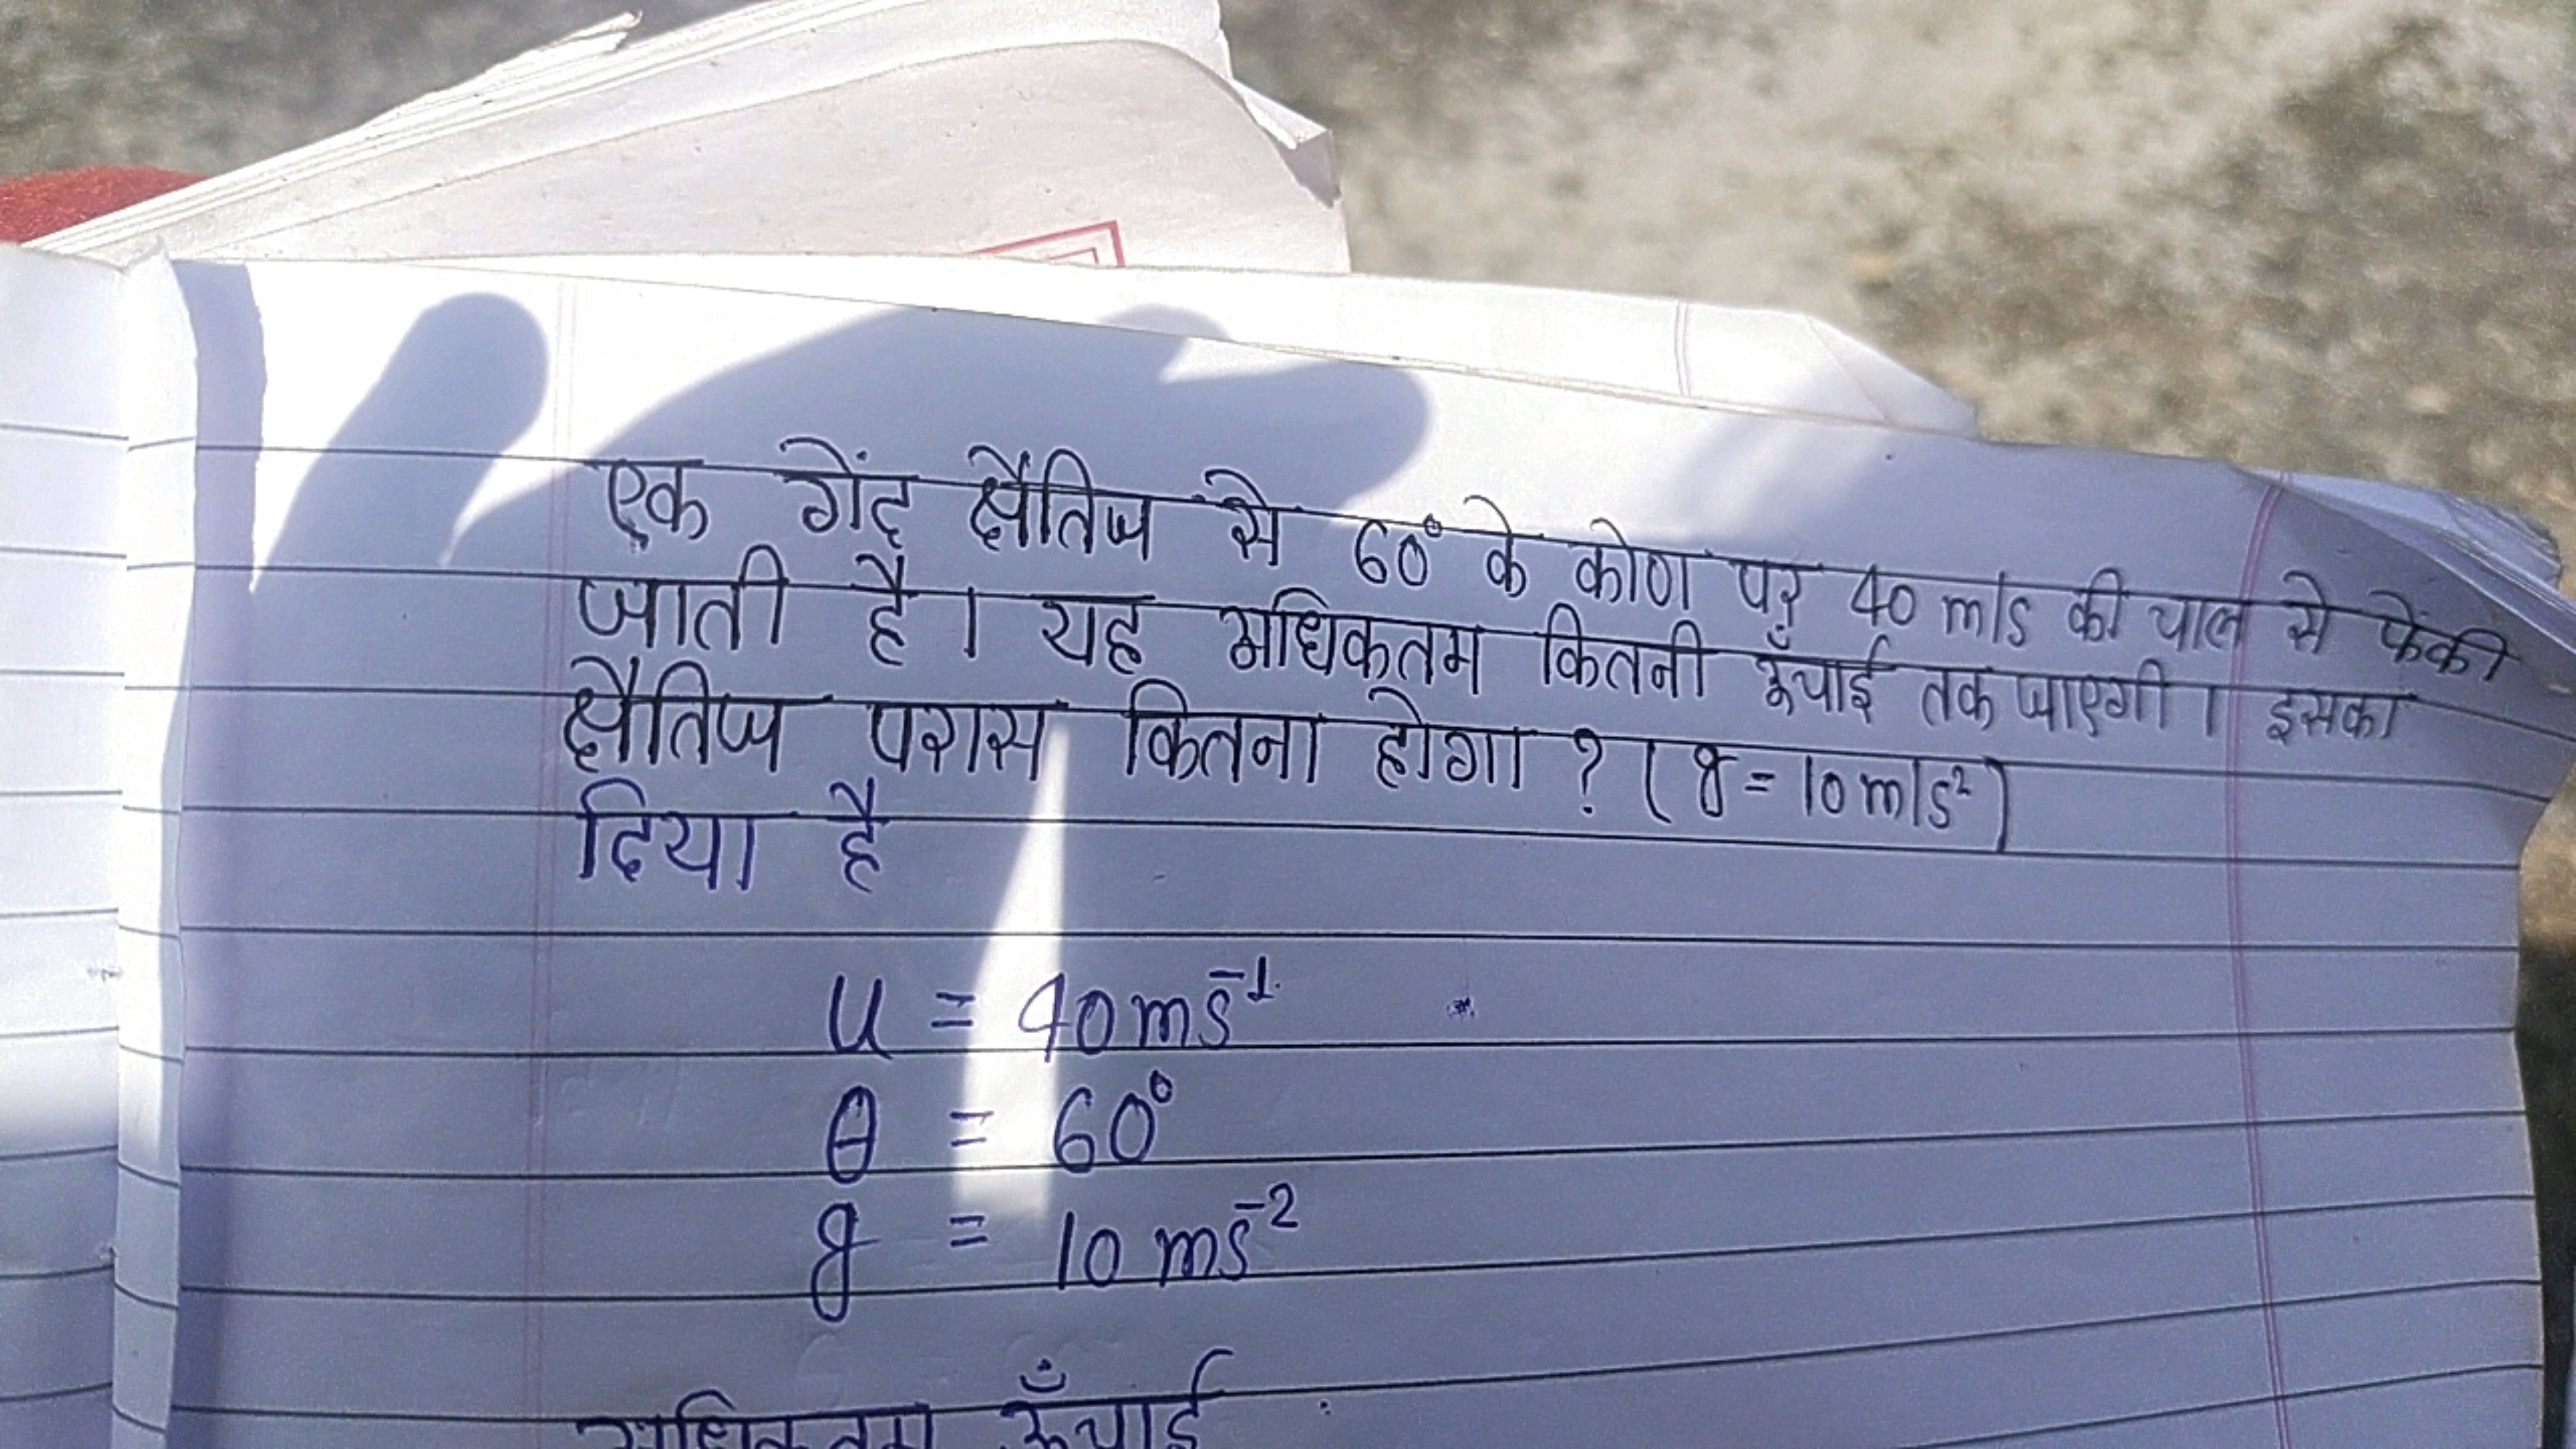 एक गेंद क्षैतिज से 60° के कोण पर 40 m/s की चाल से फेंकी
जाती है। यह अधिकतम कितनी ऊँचाई तक जाएगी। इसका
क्षैतिज परास कितना होगा ? ( g = 10 m/s²)
दिया है
u = 40 ms⁻¹
θ = 60°
g = 10 ms⁻²
अधिकतम ऊँचाई